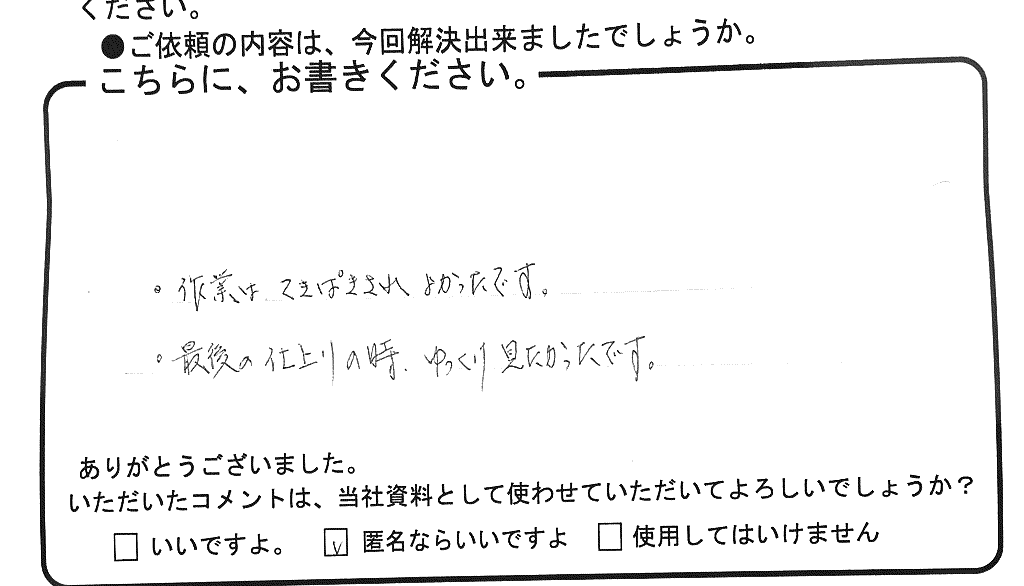 ください。
●ご依頼の内容は、今回解決出来ましたでしょうか。
こちらに、お書きください。
・作業は、てきぱきされ よかったです。
・最後の仕上りの時、ゆっくり見たかったです。
ありがとうございました。
いただいたコメントは、当社資料として使わせていただいてよろしいでしょうか？
□ いいですよ。 ☑ 匿名ならいいですよ □ 使用してはいけません